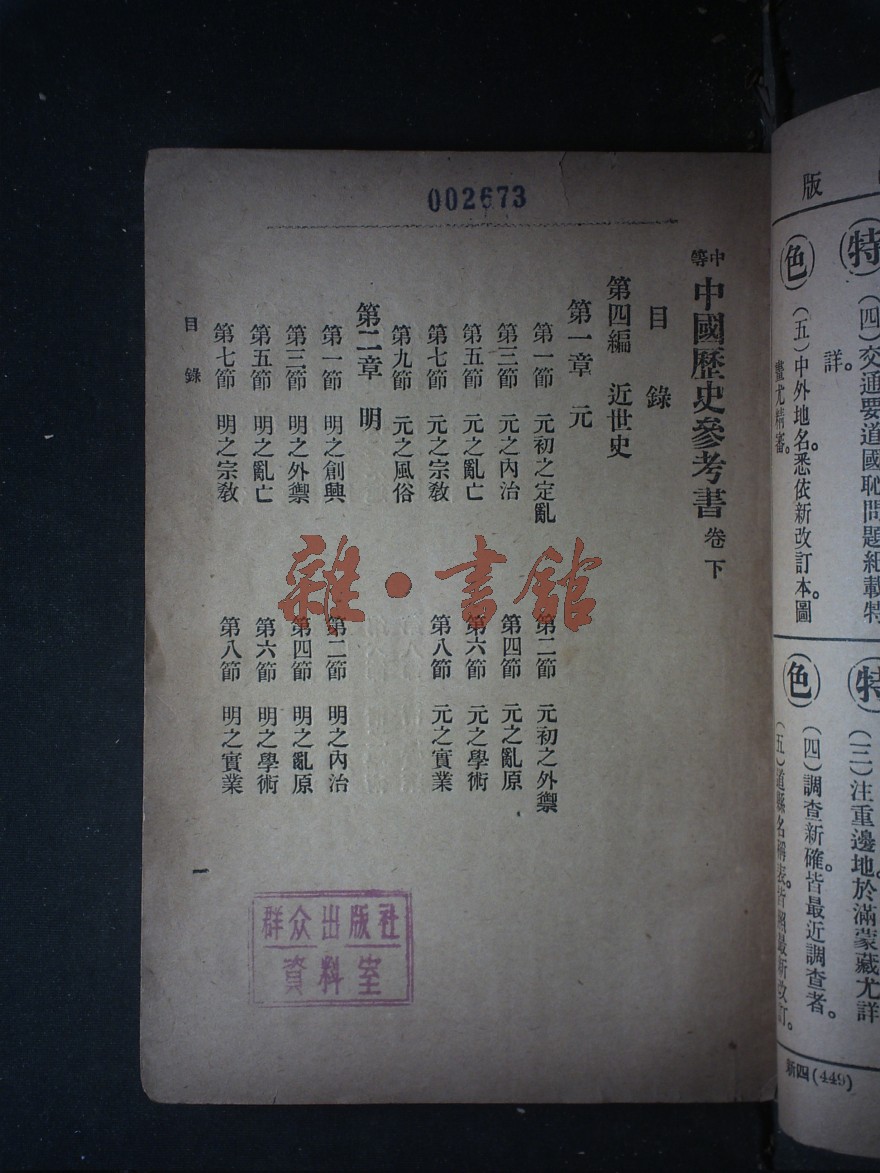 002673
中等
中國歷史參考書 卷下
目 錄
第四編 近世史
第一章 元
第一節 元初之定亂
第二節 元初之外禦
第三節 元之內治
第四節 元之亂原
第五節 元之亂亡
第六節 元之學術
第七節 元之宗敎
第八節 元之實業
第九節 元之風俗
第二章 明
第一節 明之創興
第二節 明之內治
第三節 明之外禦
第四節 明之亂原
第五節 明之亂亡
第六節 明之學術
第七節 明之宗敎
第八節 明之實業
目 錄
一
雜·書館
群众出版社
資料室
版
特
(四)交通要道國恥問題細載特
詳。
色
(五)中外地名。悉依新改訂本。圖
畫尤精審。
特
(三)注重邊地。於滿蒙藏尤詳
色
(四)調查新確。皆最近調查者。
(五)道縣名稱表。皆照最新改訂。
新四(449)